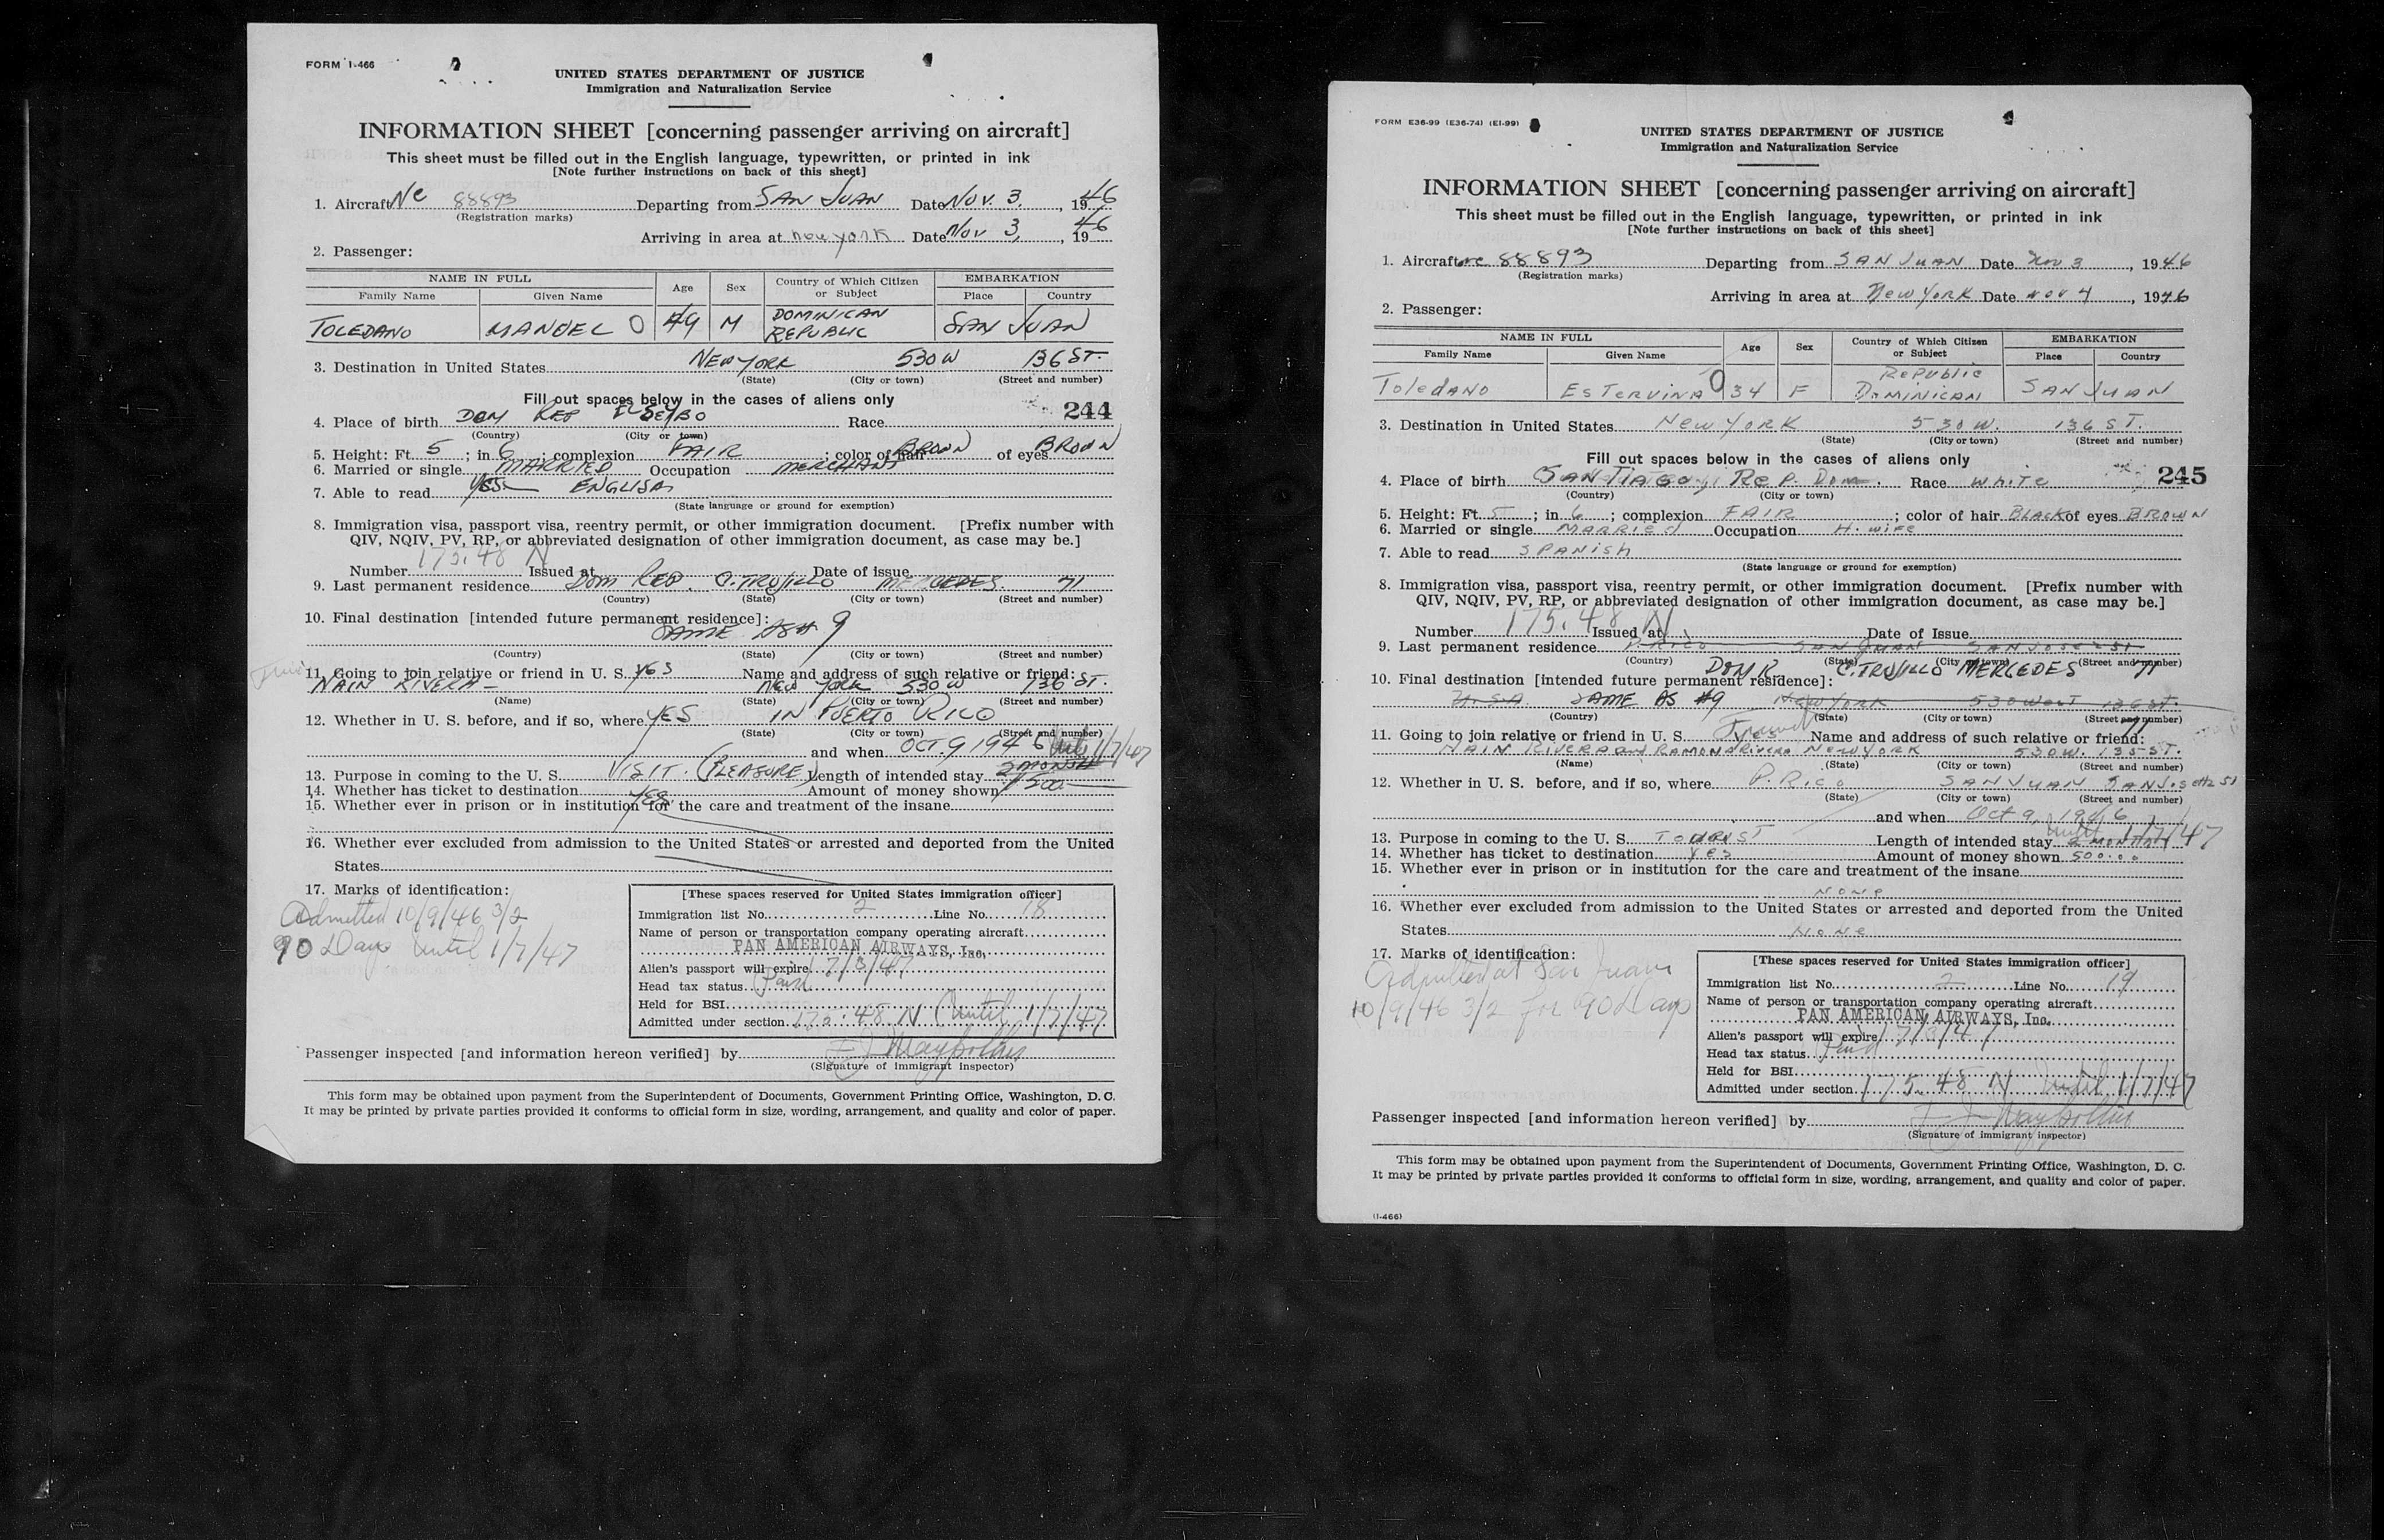 FORM I-466
UNITED STATES DEPARTMENT OF JUSTICE
Immigration and Naturalization Service
INFORMATION SHEET [concerning passenger arriving on aircraft]
This sheet must be filled out in the English language, typewritten, or printed in ink
[Note further instructions on back of this sheet]
1. Aircraft Nc 88893 Departing from SAN JUAN Date NOV. 3. , 1946
(Registration marks)
Arriving in area at new york Date Nov 3, , 1946
2. Passenger:
NAME IN FULL Age Sex Country of Which Citizen or Subject EMBARKATION
Family Name Given Name Place Country
TOLEDANO MANUEL O 49 M DOMINICAN REPUBLIC SAN JUAN
3. Destination in United States NEW YORK 530 W 136 ST.
(State) (City or town) (Street and number)
Fill out spaces below in the cases of aliens only
244
4. Place of birth DOM REP EL SEYBO Race
(Country) (City or town)
5. Height: Ft. 5 ; in 6 ; complexion FAIR ; color of hair BROWN of eyes BROWN
6. Married or single MARRIED Occupation MERCHANT
7. Able to read YES ENGLISH
(State language or ground for exemption)
8. Immigration visa, passport visa, reentry permit, or other immigration document. [Prefix number with
QIV, NQIV, PV, RP, or abbreviated designation of other immigration document, as case may be.]
Number 175.48 N Issued at Date of issue
9. Last permanent residence DOM REP. C. TRUJILLO MERCEDES. 71
(Country) (State) (City or town) (Street and number)
10. Final destination [intended future permanent residence]:
SAME AS # 9
(Country) (State) (City or town) (Street and number)
11. Going to join relative or friend in U. S. YES Name and address of such relative or friend:
NAIN RIVERA - NEW YORK 530 W 136 ST.
(Name) (State) (City or town) (Street and number)
12. Whether in U. S. before, and if so, where YES IN PUERTO RICO
(State) (City or town) (Street and number)
and when OCT. 9 1946 until 1/7/47
13. Purpose in coming to the U. S. VISIT. (PLEASURE) Length of intended stay 2 MONTH
14. Whether has ticket to destination YES Amount of money shown 500
15. Whether ever in prison or in institution for the care and treatment of the insane
16. Whether ever excluded from admission to the United States or arrested and deported from the United
States
17. Marks of identification:
Admitted 10/9/46 3/2
90 Days until 1/7/47
[These spaces reserved for United States immigration officer]
Immigration list No. 2 Line No. 18
Name of person or transportation company operating aircraft
PAN AMERICAN AIRWAYS, Inc.
Alien's passport will expire 7/3/47
Head tax status Paid
Held for BSI
Admitted under section 175.48 N Until 1/7/47
Passenger inspected [and information hereon verified] by
(Signature of immigrant inspector)
This form may be obtained upon payment from the Superintendent of Documents, Government Printing Office, Washington, D. C.
It may be printed by private parties provided it conforms to official form in size, wording, arrangement, and quality and color of paper.
FORM E36-99 (E36-74) (E1-99)
UNITED STATES DEPARTMENT OF JUSTICE
Immigration and Naturalization Service
INFORMATION SHEET [concerning passenger arriving on aircraft]
This sheet must be filled out in the English language, typewritten, or printed in ink
[Note further instructions on back of this sheet]
1. Aircraft nc 88893 Departing from SAN JUAN Date Nov 3 , 1946
(Registration marks)
Arriving in area at New York Date nov 4 , 1946
2. Passenger:
NAME IN FULL Age Sex Country of Which Citizen or Subject EMBARKATION
Family Name Given Name Place Country
Toledano ESTERVINA O 34 F Republic DOMINICAN SAN JUAN
3. Destination in United States New York 530 W. 136 ST.
(State) (City or town) (Street and number)
Fill out spaces below in the cases of aliens only
245
4. Place of birth SANTIAGO, Rep. Dom. Race white
(Country) (City or town)
5. Height: Ft. 5 ; in 6 ; complexion FAIR ; color of hair BLACK of eyes BROWN
6. Married or single MARRIED Occupation H. wife
7. Able to read SPANISH
(State language or ground for exemption)
8. Immigration visa, passport visa, reentry permit, or other immigration document. [Prefix number with
QIV, NQIV, PV, RP, or abbreviated designation of other immigration document, as case may be.]
Number 175.48 N Issued at Date of Issue
9. Last permanent residence P. RICO SAN JUAN SAN JOSE 51
(Country) (State) (City or town) (Street and number)
DOM R. C. TRUJILLO MERCEDES 71
10. Final destination [intended future permanent residence]:
U.S.A. SAME AS #9 NEW YORK 530 West 136 St.
(Country) (State) (City or town) (Street and number)
11. Going to join relative or friend in U. S. Name and address of such relative or friend:
NAIN RIVERA and RAMONA Rivera NEW YORK 530 W. 135 ST.
(Name) (State) (City or town) (Street and number)
12. Whether in U. S. before, and if so, where P. RICO SAN JUAN
(State) (City or town) (Street and number)
and when Oct 9, 1946
until 1/7/47
13. Purpose in coming to the U. S. TOURIST Length of intended stay 2 MONTH
14. Whether has ticket to destination Yes Amount of money shown 500.00
15. Whether ever in prison or in institution for the care and treatment of the insane
NONE
16. Whether ever excluded from admission to the United States or arrested and deported from the United
States NONE
17. Marks of identification:
Admitted at San Juan
10/9/46 3/2 for 90 Days
[These spaces reserved for United States immigration officer]
Immigration list No. 2 Line No. 19
Name of person or transportation company operating aircraft
PAN AMERICAN AIRWAYS, Inc.
Alien's passport will expire
Head tax status Paid
Held for BSI
Admitted under section 175.48 N Until 1/7/47
Passenger inspected [and information hereon verified] by
(Signature of immigrant inspector)
This form may be obtained upon payment from the Superintendent of Documents, Government Printing Office, Washington, D. C.
It may be printed by private parties provided it conforms to official form in size, wording, arrangement, and quality and color of paper.
(I-466)